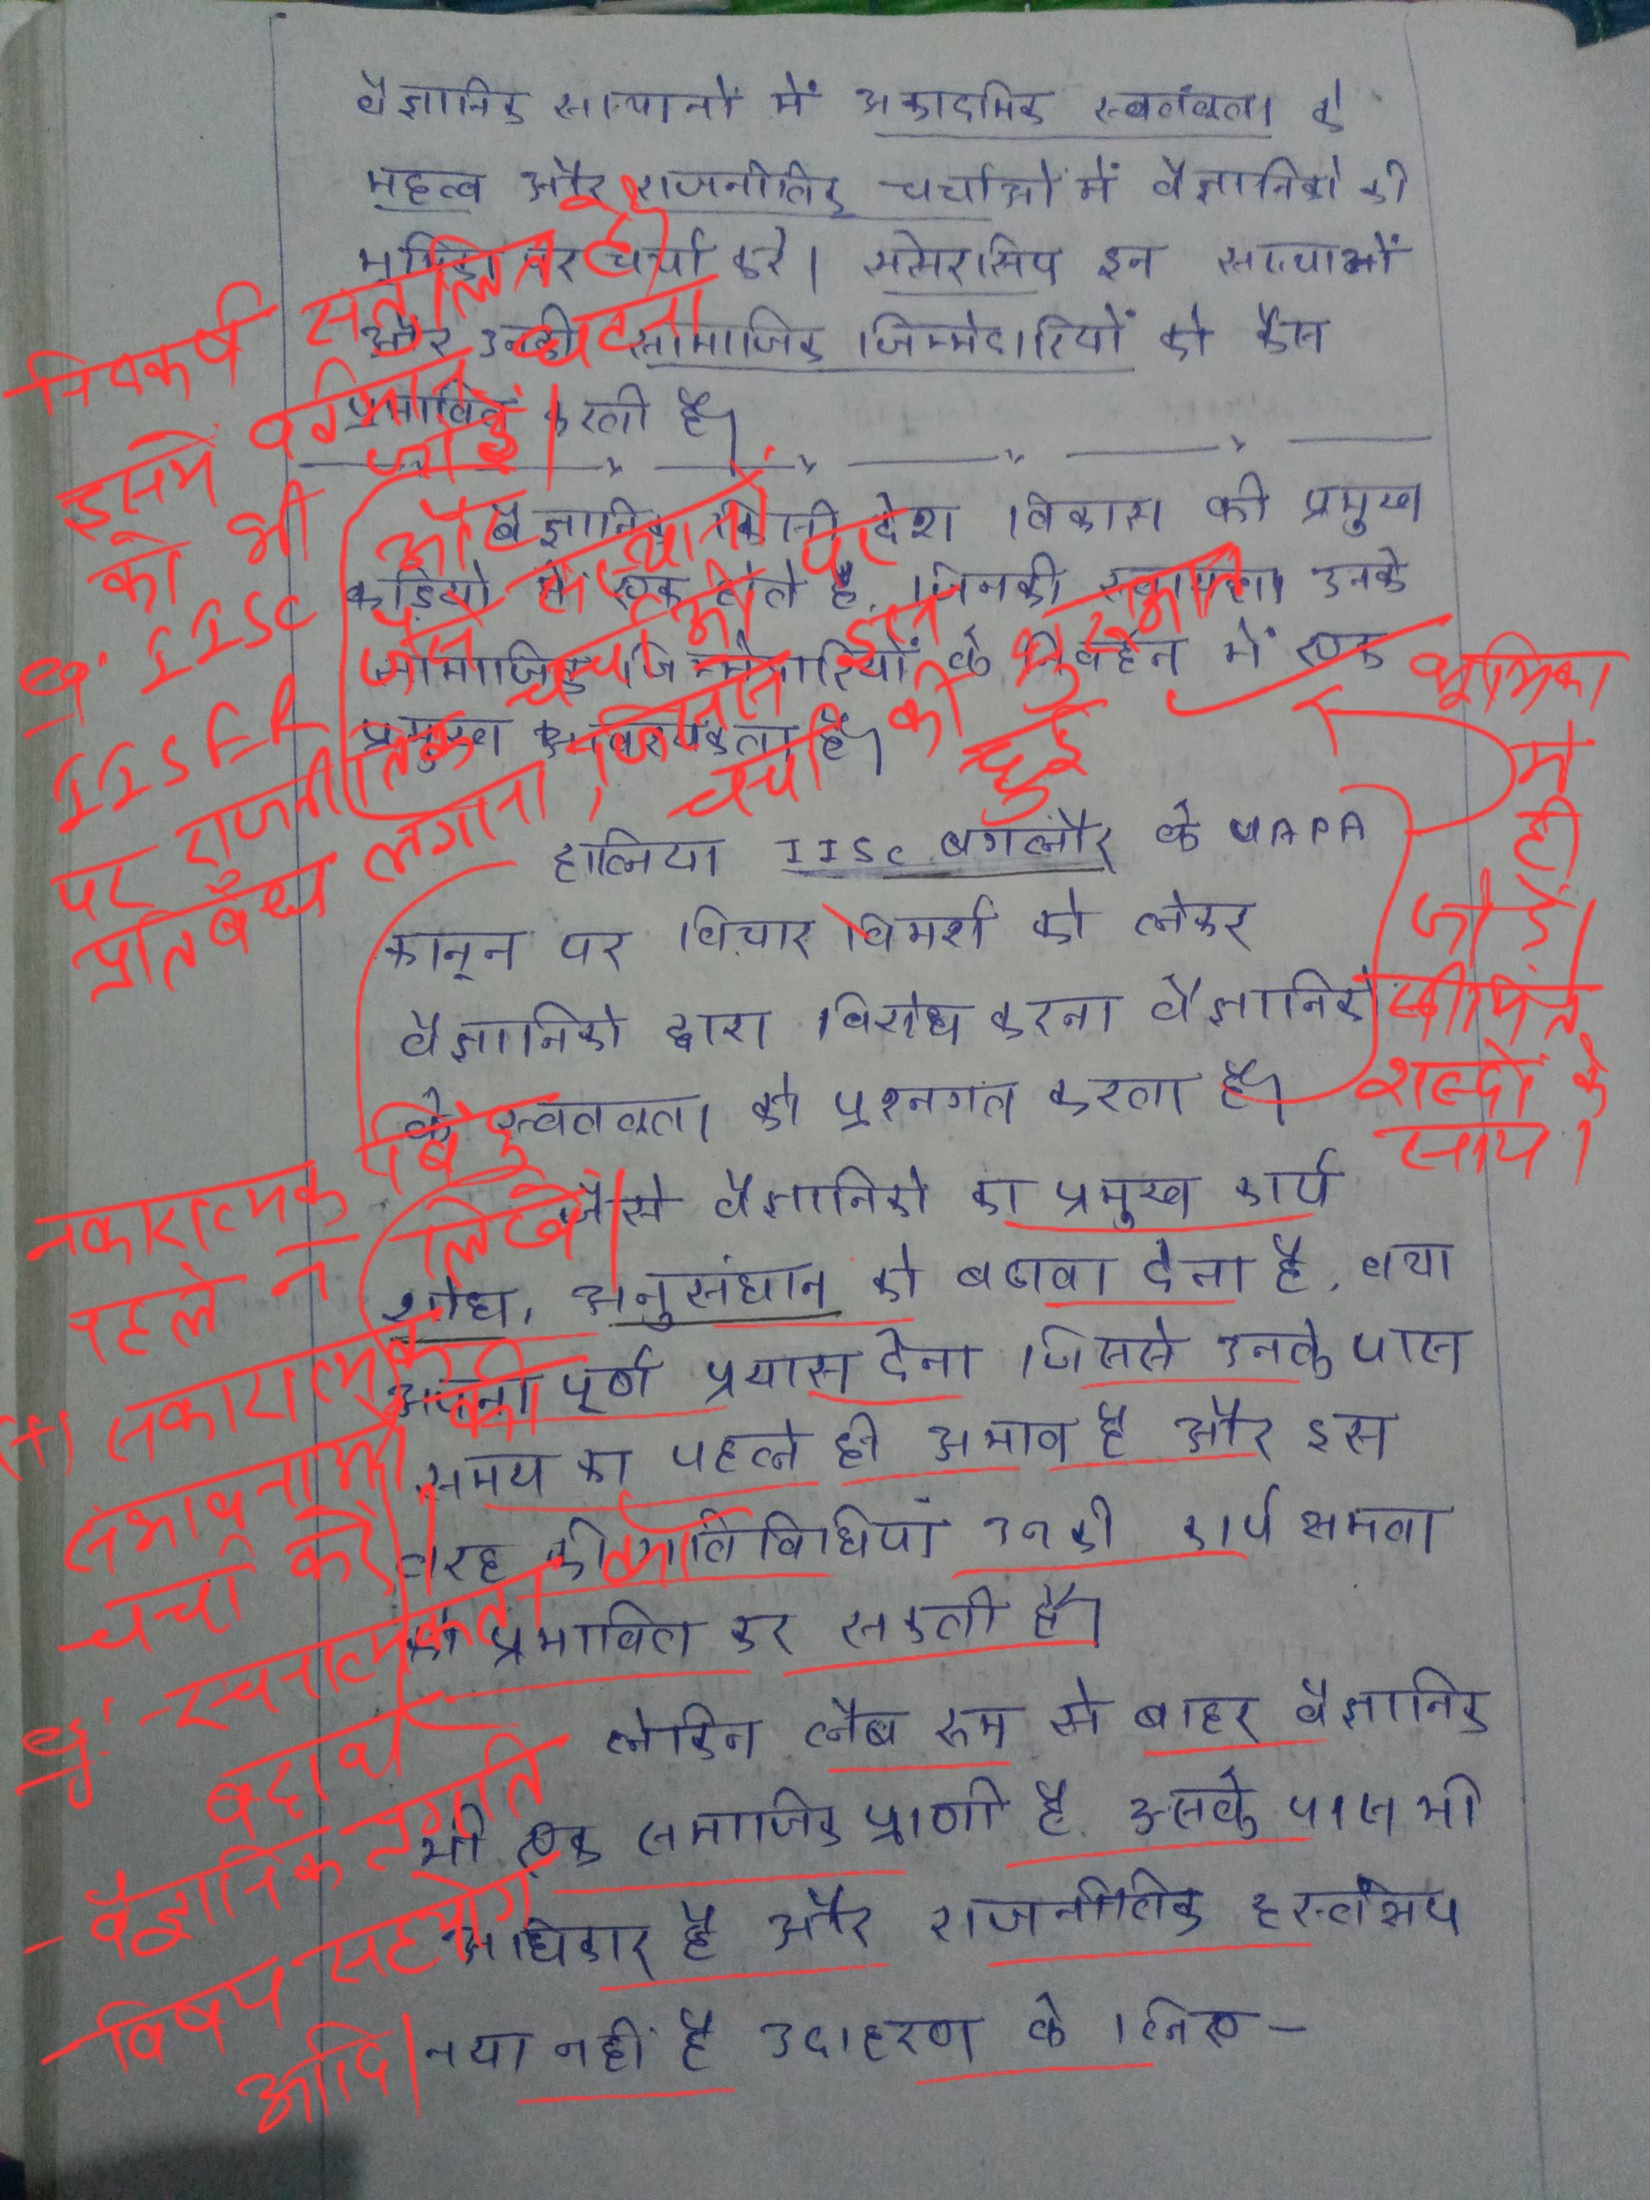 वैज्ञानिक सस्थानों में अकादमिक स्वतंत्रता के
महत्व और राजनीतिक चर्चाओं में वैज्ञानिको की
भूमिका पर चर्चा करे। सेंसरसिप इन सस्थाओं
और उनकी सामाजिक जिम्मेदारियों को कैस
प्रभावित करती है।
वैज्ञानिक किसी देश विकास की प्रमुख
कड़ियो मे एक होते है, जिनकी स्वतंत्रता उनके
सामाजिक जिम्मेदारियों के निर्वहन में एक
प्रमुख आवश्यकता है।
हालिया IISc बगलौर के UAPA
कानून पर विचार विमर्श को लेकर
वैज्ञानिको द्वारा विरोध करना वैज्ञानिको
के स्वतंत्रता को प्रश्नगत करता है।
जैसे वैज्ञानिको का प्रमुख कार्य
शोध, अनुसंधान को बढावा देना है, तथा
अपना पूर्ण प्रयास देना जिससे उनके पास
समय का पहले ही अभाव है और इस
तरह की गतिविधियां उनकी कार्य क्षमता
को प्रभावित कर सकती है।
लेकिन लैब रूम से बाहर वैज्ञानिक
भी एक समाजिक प्राणी है. उसके पास भी
अधिकार है और राजनीतिक हस्तक्षेप
नया नहीं है उदाहरण के लिए -
निष्कर्ष सतुलित है।
इसमें वर्तमान घटना
को भी जोड़ें।
IISC और
IISER जैसे संस्थानों
पर राजनीतिक चर्चाओं पर
प्रतिबंध लगाना, जिससे इस
चर्चा की शुरुआत
हुई
भूमिका
में
ही
जोड़ें।
सीमित
शब्दों के
साथ।
नकारात्मक बिंदु
पहले न लिखें।
(+) सकारात्मक
संभावनाओं की
चर्चा करें।
- रचनात्मकता को
बढ़ावा
- वैज्ञानिक प्रगति
- विषय सहयोग
आदि।